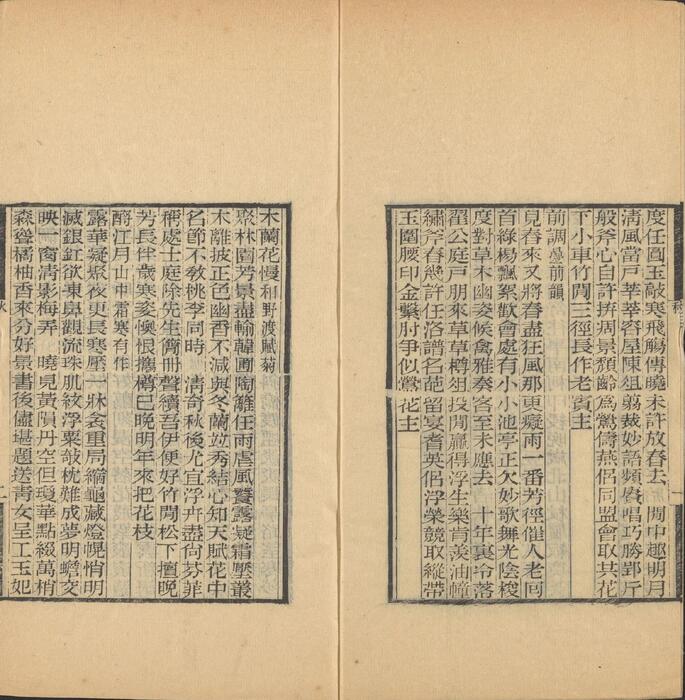 度任圓玉敲寒飛觴傳曉未許放春去 閒中趣明月
清風當戶莘莘容屋陳俎翦裁妙語頻賡唱巧勝郢斤
般斧心自許拚凋景頹齡為鶯儔燕侶同盟會取共花
下小車竹閒三徑長作老賓主
前調疊前韻
兒春來又將春盡狂風那更癡雨一番芳徑催人老回
首綠楊飄絮歡會處有小小池亭正欠妙歌舞光陰梭
度對草木幽姿候禽雅奏客至未應去 十年裏冷落
翟公庭戶朋來草草樽俎投閒贏得浮生樂肯羨油幢
繡斧春幾許任洛譜名葩留宴耆英侶浮榮競取縱帶
玉圍腰印金繫肘爭似鶯花主
木蘭花慢和野渡賦菊
聚林園芳景盡輸韓圃陶籬任雨虐風饕露凝霜壓叢
木離披正色幽香不減與冬蘭竝秀結心知天賦花中
名節不教桃李同時 清奇秋後尤宜浮卉盡尚芬菲
稱處士庭除先生籩冊聲續吾伊便好竹閒松下擅晚
芳長伴歲寒姿懊恨攜樽已晚明年來把花枝
酹江月山中霜寒有作
露華凝聚夜更長寒壓一牀衾重局縮龜藏燈幌悄明
滅銀釭欲凍鼻觀流珠肌紋浮粟敧枕難成夢明蟾交
映一窗清影梅弄 曉見黃隕丹空但瓊華點綴萬梢
森聳橘柚香來分好景書後儘堪題送青女呈工玉妃